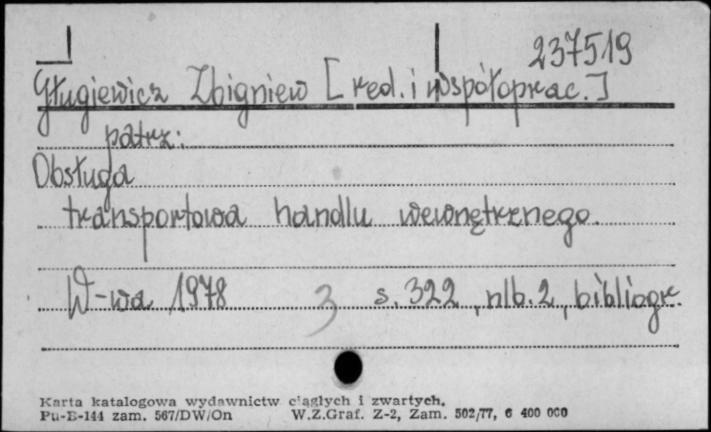 237519
Gługiewicz Zbigniew [red. i współoprac.]
patrz:
Obsługa
transportowa handlu wewnętrznego.
W-wa 1978 3 s. 322, nlb. 2, bibliogr.
Karta katalogowa wydawnictw ciągłych i zwartych.
Pu-E-144 zam. 567/DW/On W.Z.Graf. Z-2, Zam. 502/77, 6 400 000